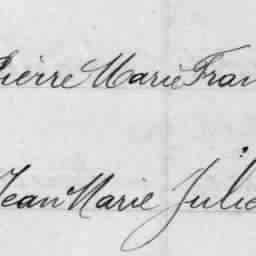 Pierre Marie Fran
Jean Marie Julie